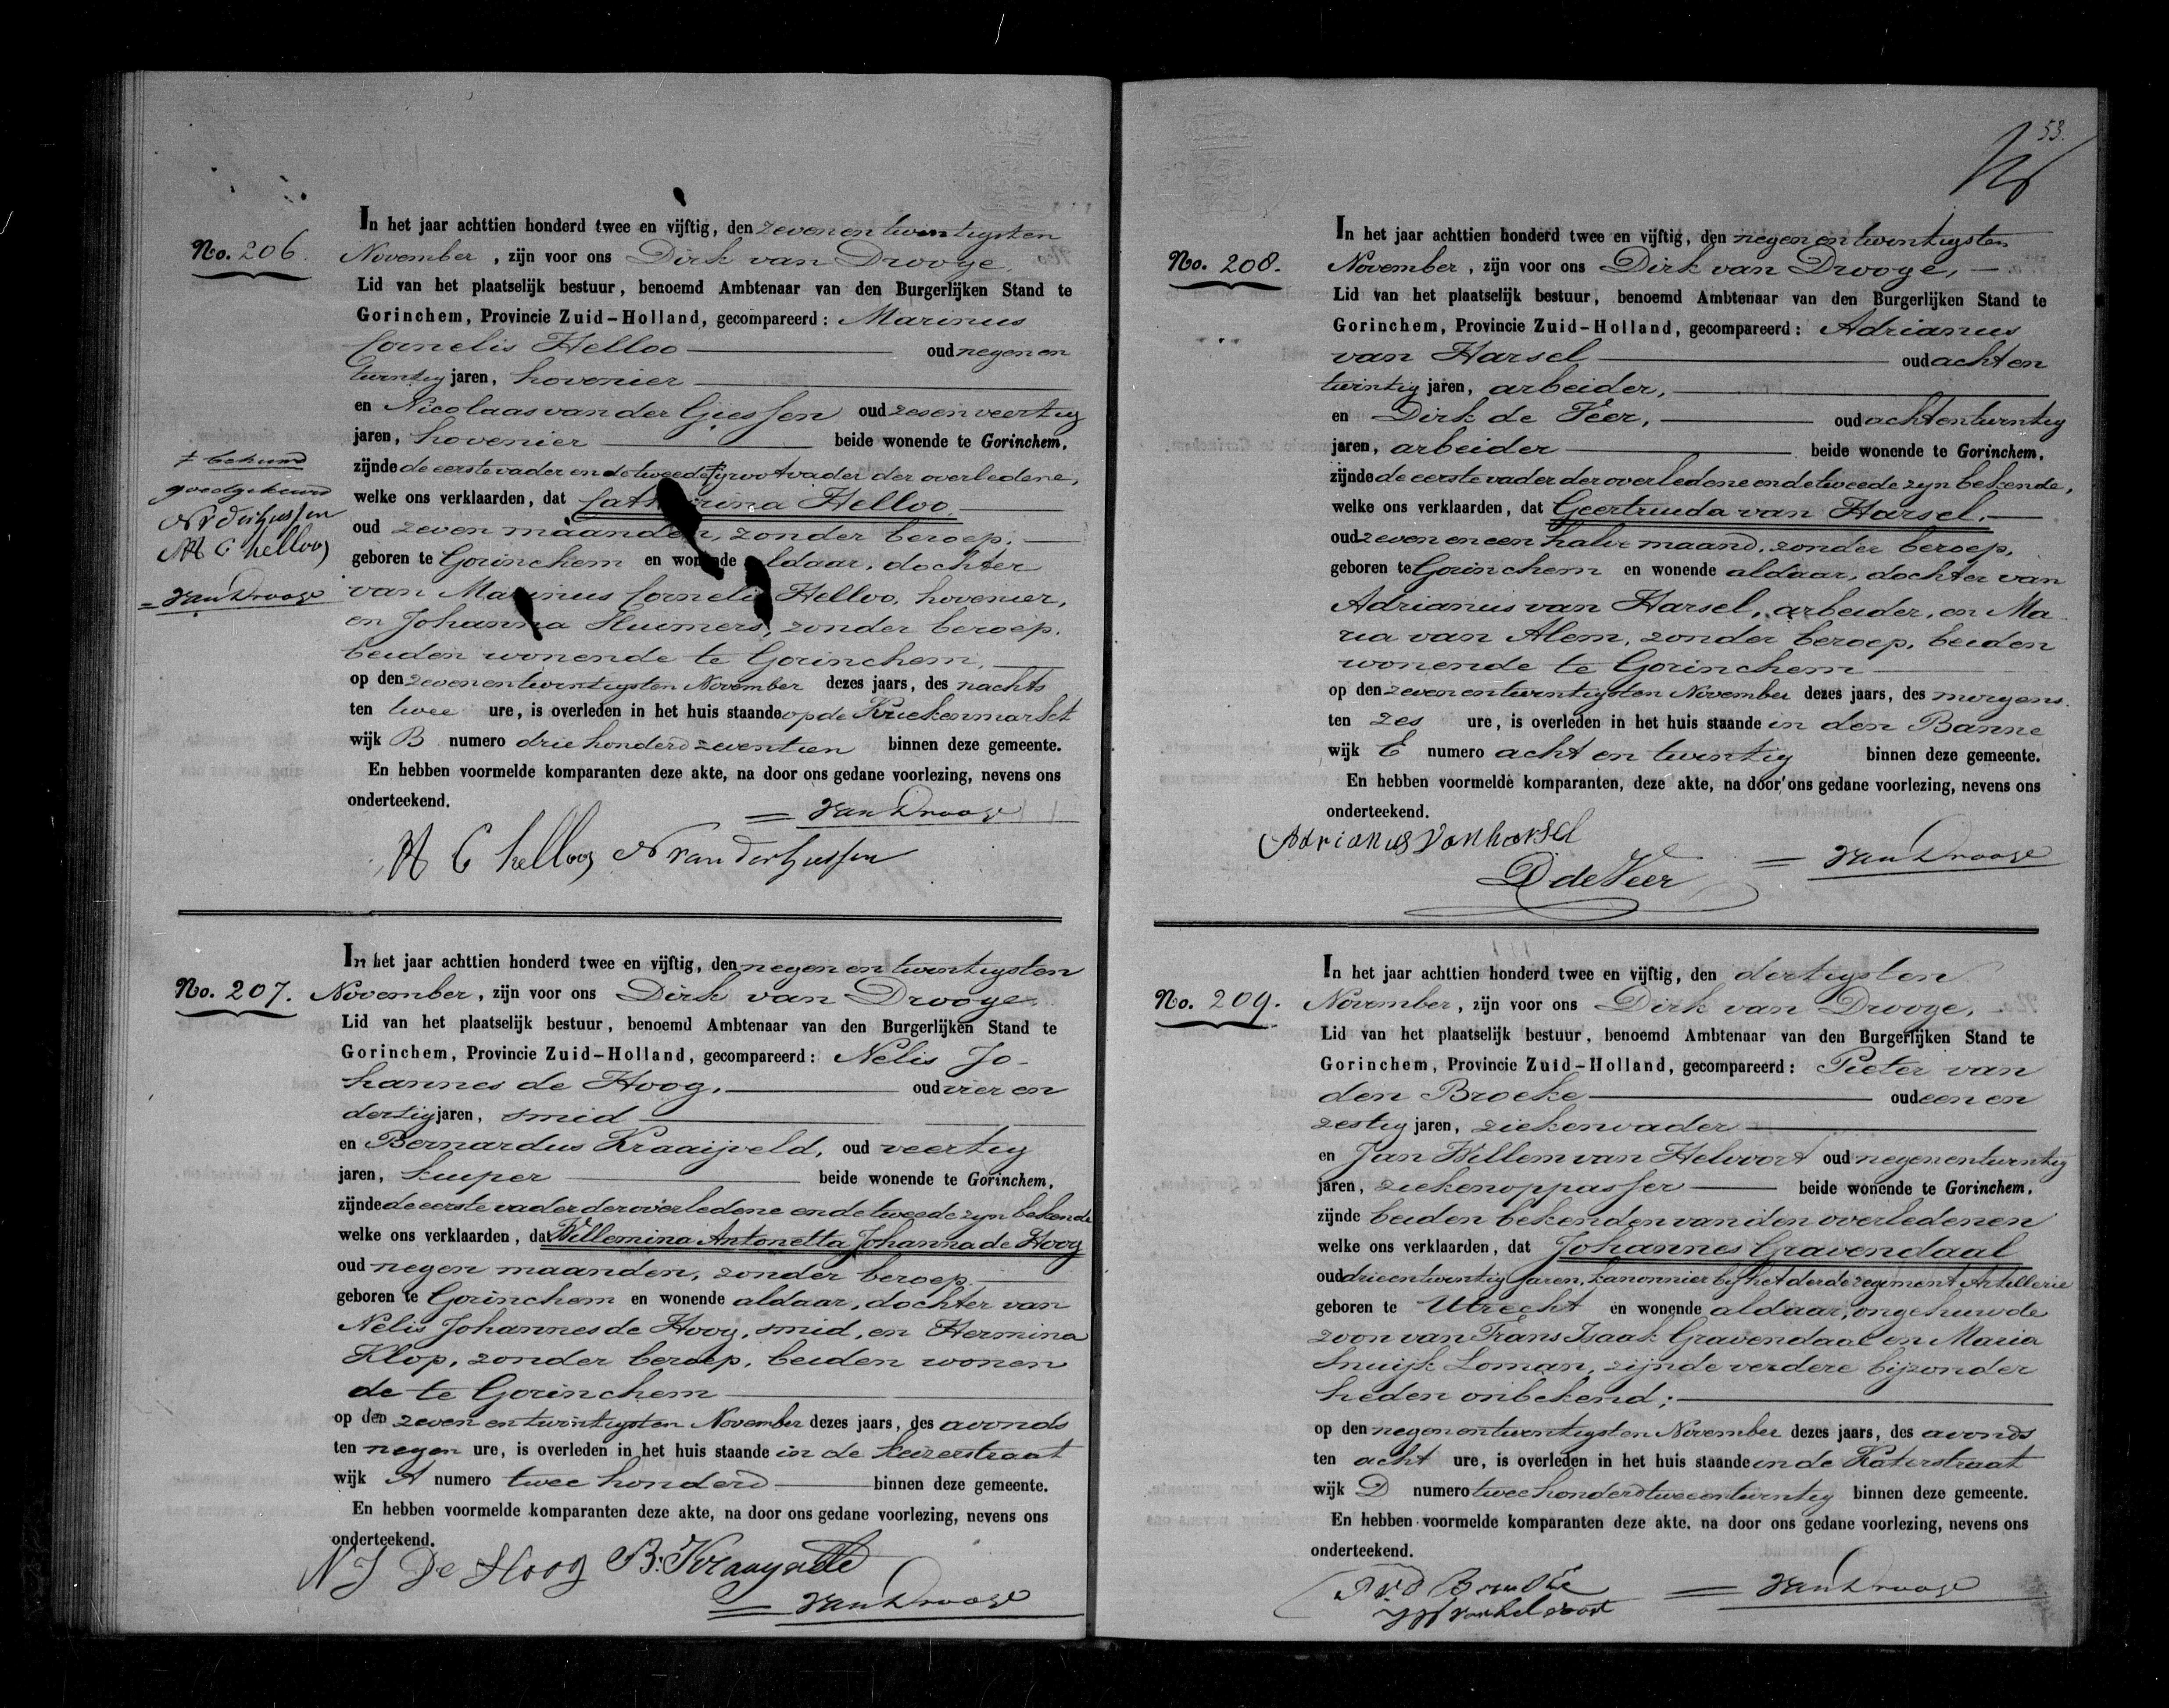 No. 206.
In het jaar achttien honderd twee en vijftig, den zevenentwintigsten
November, zijn voor ons Dirk van Drooge,
Lid van het plaatselijk bestuur, benoemd Ambtenaar van den Burgerlijken Stand te
Gorinchem, Provincie Zuid-Holland, gecompareerd: Marinus
Cornelis Helloo oud negen en
twintig jaren, hovenier
en Nicolaas van der Giessen oud zesenveertig
jaren, hovenier beide wonende te Gorinchem,
zijnde de eerste vader en de tweede ‡ grootvader der overledene,
welke ons verklaarden, dat Catharina Helloo,
oud zeven maanden, zonder beroep,
geboren te Gorinchem en wonende aldaar, dochter
van Marinus Cornelis Helloo, hovenier,
en Johanna Sluimers, zonder beroep,
beiden wonende te Gorinchem,
op den zevenentwintigsten November dezes jaars, des nachts
ten twee ure, is overleden in het huis staande op de Kriekenmarkt
wijk B numero driehonderd zeventien binnen deze gemeente.
En hebben voormelde komparanten deze akte, na door ons gedane voorlezing, nevens ons
onderteekend.
van Drooge
M C helloo N van der Giessen
‡ behuwd
goedgekeurd
N v der Giessen
M C helloo
van Drooge
No. 207.
In het jaar achttien honderd twee en vijftig, den negen en twintigsten
November, zijn voor ons Dirk van Drooge
Lid van het plaatselijk bestuur, benoemd Ambtenaar van den Burgerlijken Stand te
Gorinchem, Provincie Zuid-Holland, gecompareerd: Nelis Jo-
hannes de Hoog, oud vier en
dertig jaren, smid
en Bernardus Kraaijveld, oud veertig
jaren, kuiper beide wonende te Gorinchem,
zijnde de eerste vader der overledene en de tweede zijn bekende
welke ons verklaarden, dat Willemina Antonetta Johanna de Hoog
oud negen maanden, zonder beroep
geboren te Gorinchem en wonende aldaar, dochter van
Nelis Johannes de Hoog, smid, en Hermina
Klop, zonder beroep, beiden wonen
de te Gorinchem
op den zeven en twintigsten November dezes jaars, des avonds
ten negen ure, is overleden in het huis staande in de Keizerstraat
wijk A numero twee honderd binnen deze gemeente.
En hebben voormelde komparanten deze akte, na door ons gedane voorlezing, nevens ons
onderteekend.
N J De Hoog B. Kraayveld
van Drooge
53.
No. 208.
In het jaar achttien honderd twee en vijftig, den negen en twintigsten
November, zijn voor ons Dirk van Drooge,
Lid van het plaatselijk bestuur, benoemd Ambtenaar van den Burgerlijken Stand te
Gorinchem, Provincie Zuid-Holland, gecompareerd: Adrianus
van Harsel oud acht en
twintig jaren, arbeider,
en Dirk de Veer, oud achtentwintig
jaren, arbeider beide wonende te Gorinchem,
zijnde de eerste vader der overledene en de tweede zijn bekende,
welke ons verklaarden, dat Geertruida van Harsel,
oud zeven en een halve maand, zonder beroep,
geboren te Gorinchem en wonende aldaar, dochter van
Adrianus van Harsel, arbeider, en Ma
ria van Alem, zonder beroep, beiden
wonende te Gorinchem
op den zevenentwintigsten November dezes jaars, des morgens
ten zes ure, is overleden in het huis staande in den Banne
wijk E numero acht en twintig binnen deze gemeente.
En hebben voormelde komparanten, deze akte, na door ons gedane voorlezing, nevens ons
onderteekend.
Adrianus van harsel
D de Veer
van Drooge
No. 209.
In het jaar achttien honderd twee en vijftig, den dertigsten
November, zijn voor ons Dirk van Drooge,
Lid van het plaatselijk bestuur, benoemd Ambtenaar van den Burgerlijken Stand te
Gorinchem, Provincie Zuid-Holland, gecompareerd: Pieter van
den Broeke oud een en
zestig jaren, ziekenvader
en Jan Willem van Helvoort oud negenentwintig
jaren, ziekenoppasser beide wonende te Gorinchem,
zijnde beiden bekenden van den overledenen
welke ons verklaarden, dat Johannes Gravendaal
oud drieentwintig jaren, kanonnier bij het derde regiment Artillerie
geboren te Utrecht en wonende aldaar, ongehuwde
zoon van Frans Isaak Gravendaal en Maria
Snuijk Loman, zijnde verdere bijzonder
heden onbekend;
op den negenentwintigsten November dezes jaars, des avonds
ten acht ure, is overleden in het huis staande in de Katerstraat
wijk D numero tweehonderdtweeentwintig binnen deze gemeente.
En hebben voormelde komparanten deze akte. na door ons gedane voorlezing, nevens ons
onderteekend.
van Drooge
J W van helvoort